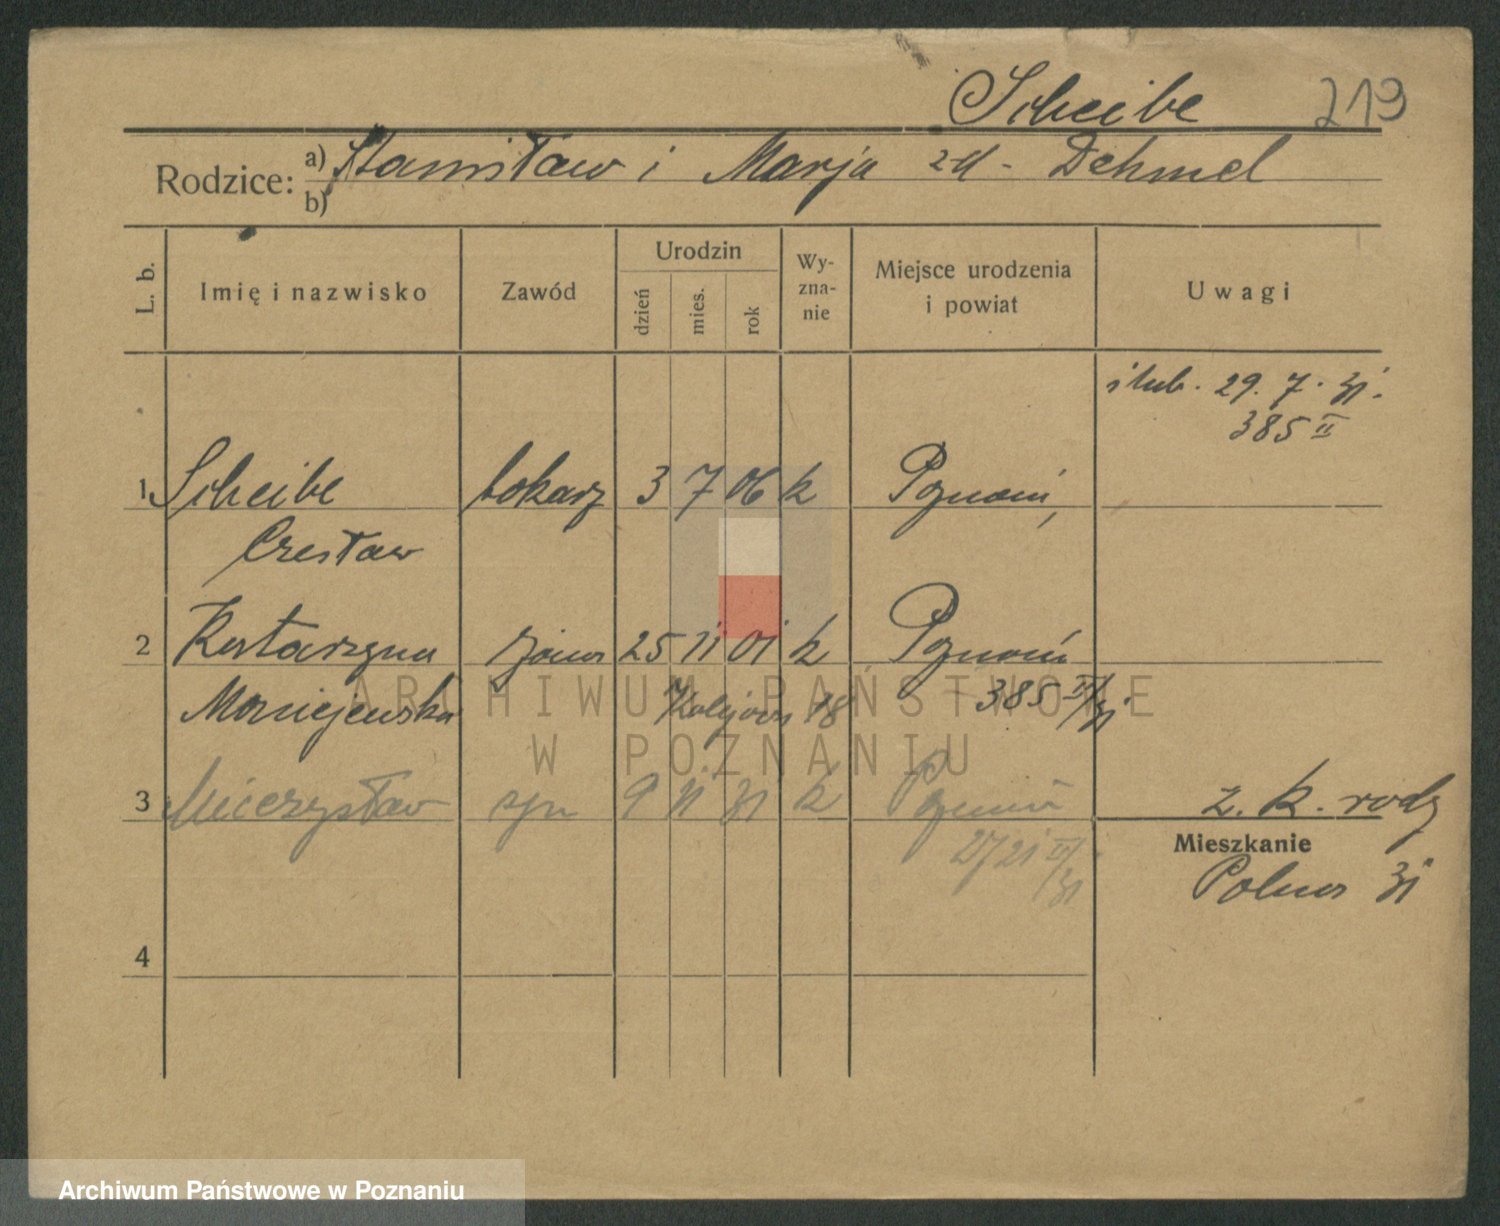 Scheibe 219
Rodzice: a) Stanisław i Marja zd. Dehmel
b)
L. b. Imię i nazwisko Zawód Urodzin dzień mies. rok Wyznanie Miejsce urodzenia i powiat Uwagi
ślub. 29. 7. 31.
385 II
1 Scheibe tokarz 3 7 06 k Poznań,
Czesław
2 Katarzyna żona 25 11 01 k Poznań
Maciejewska Kolejowa 18 385 II/31
3 Mieczysław syn 9 11 31 k Poznań z. k. rodz
2721 II/31
Mieszkanie
Polna 31
4
ARCHIWUM PAŃSTWOWE
W POZNANIU
Archiwum Państwowe w Poznaniu